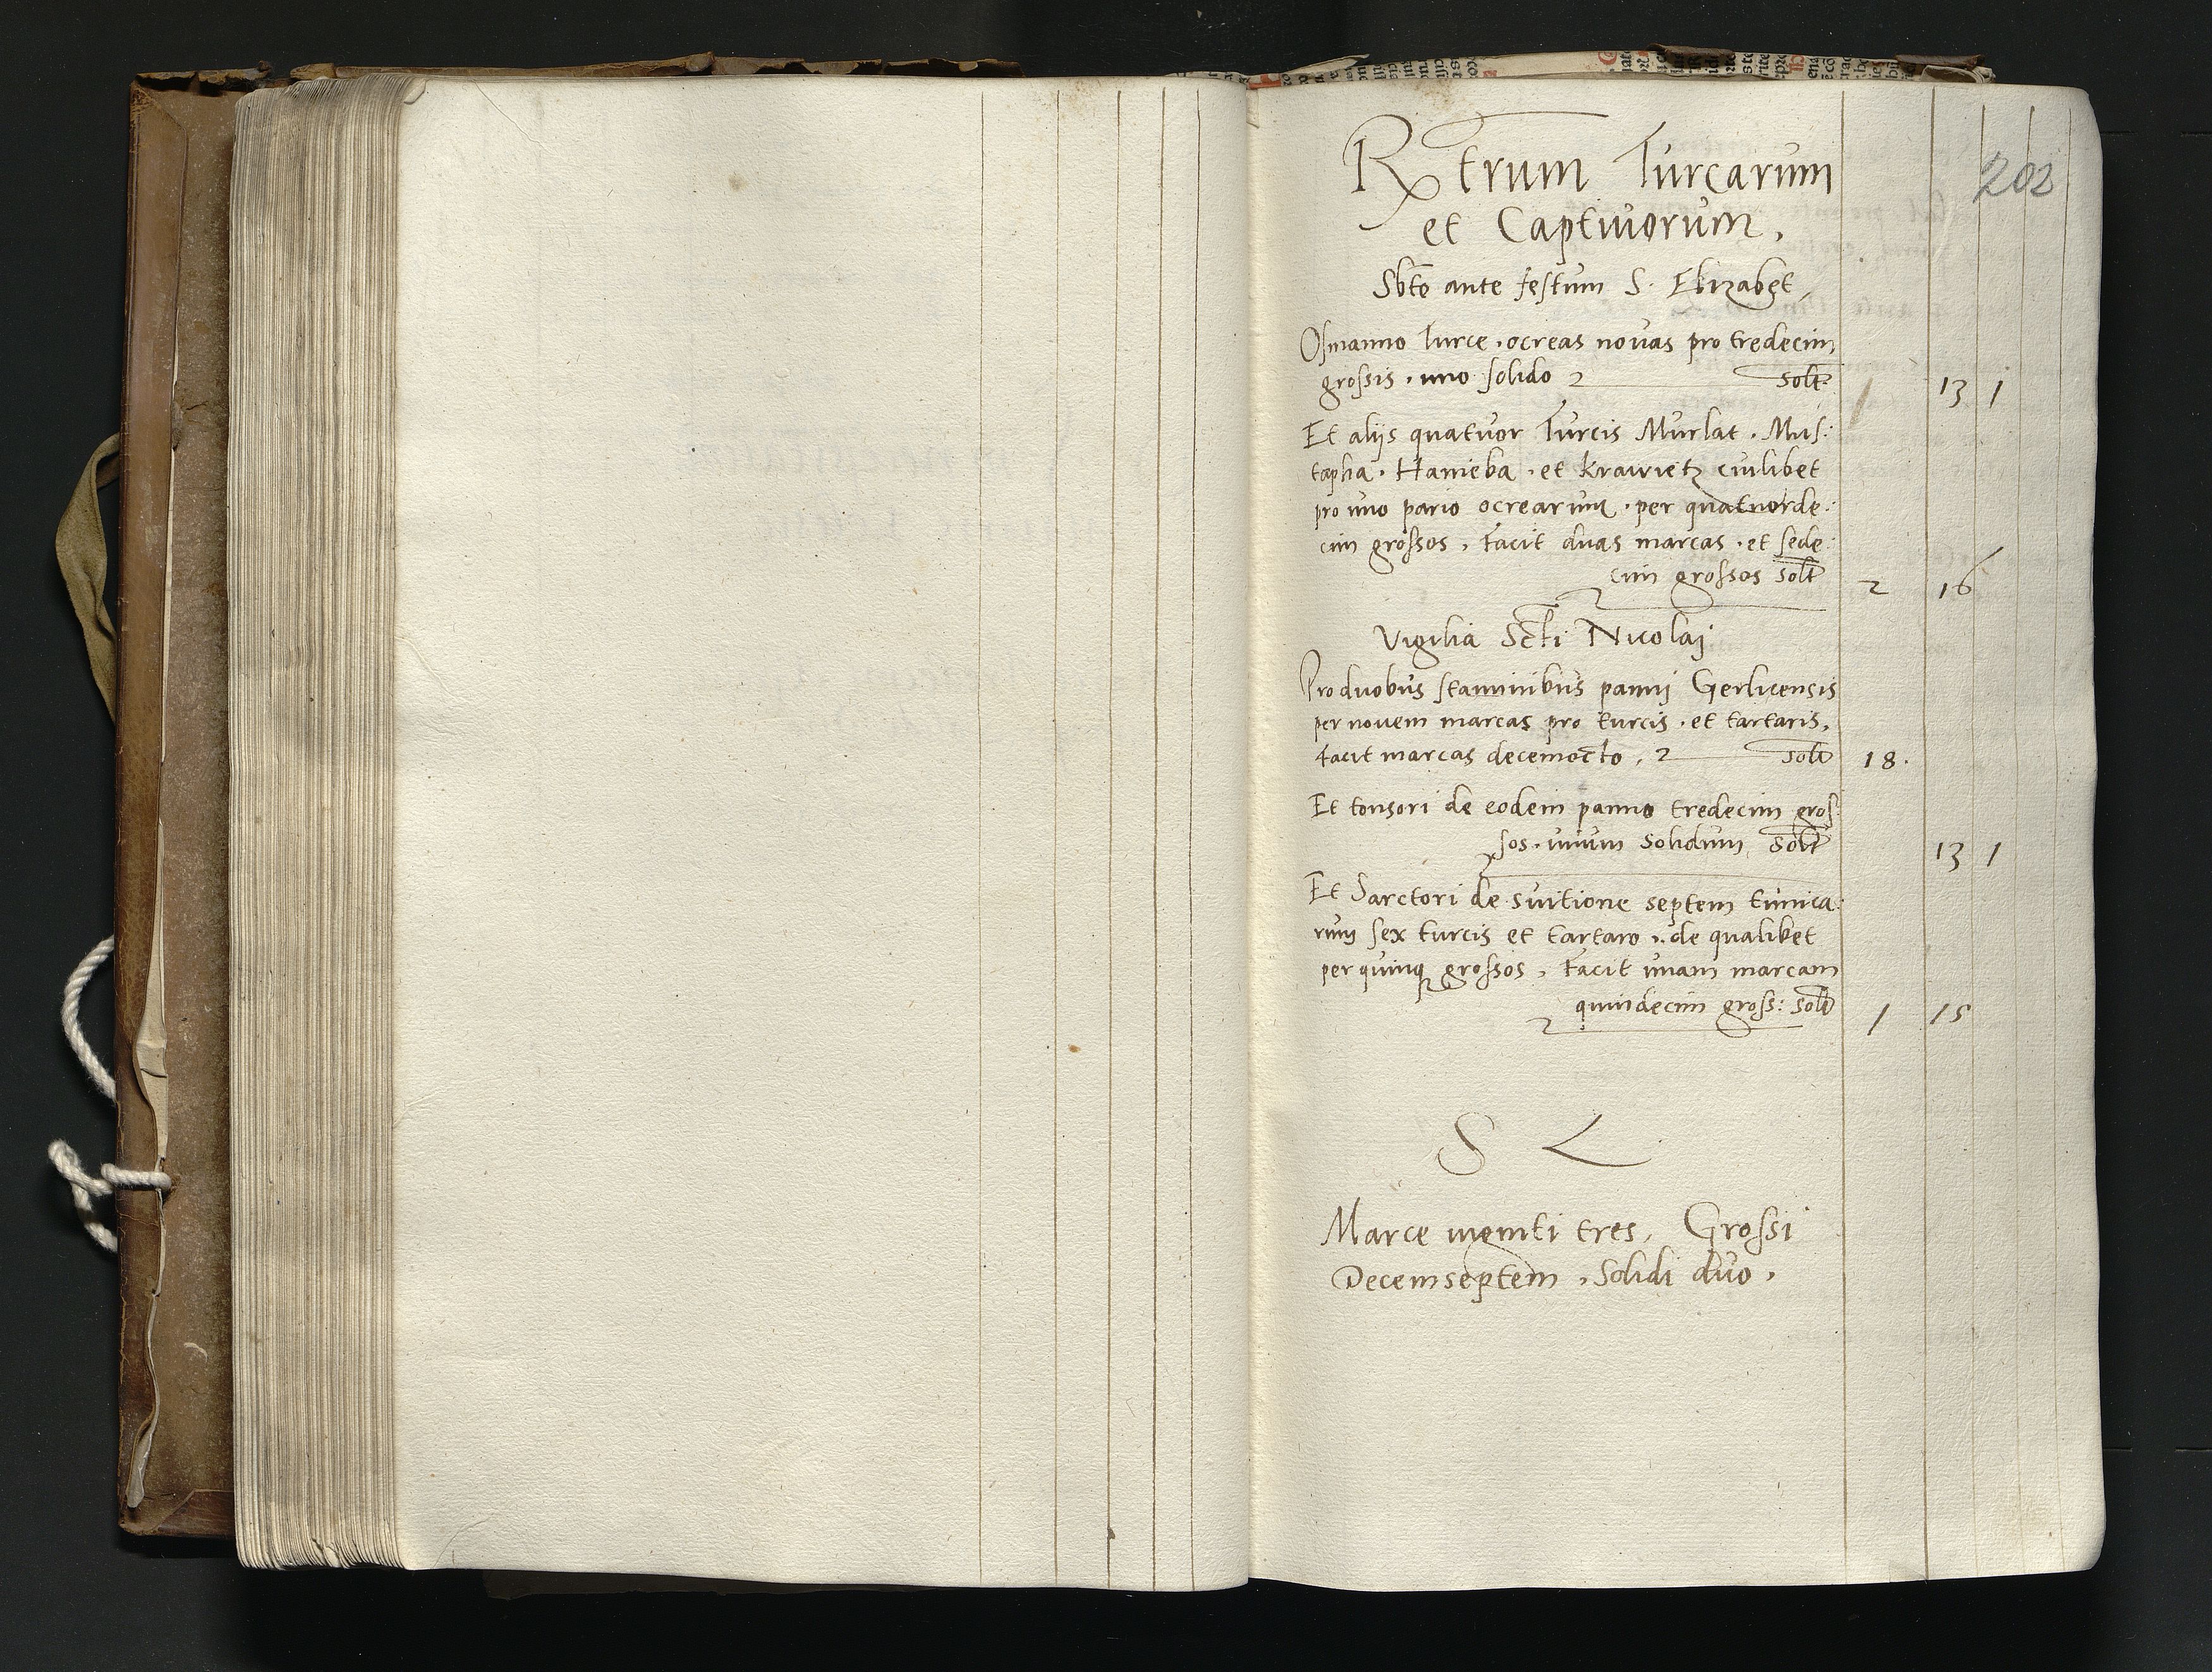 202
Rx trum Turcarum
et Captiuorum,
Sbto ante festum S. Elizabet,
Osmanno Turce, ocreas novas pro tredecim
grossis, uno solido solt 13 1
Et alijs quatuor Turcis Murlat, Mus:
tapha, Hanieba, et Krawietz cuilibet
pro uno pario ocrearum, per quatuorde:
cim grossos, Facit duas marcas, et sede:
cim grossos solt 2 16
Vigilia Scti Nicolaj
Pro duobus staminibus pannj Gerlicensis
per nouem marcas pro turcis, et tartaris,
facit marcas decemocto, solt 18.
Et tonsori de eodem panno tredecim gros:
sos, unum solidum, solt 13 1
Et Sarctori de suitione septem tunica:
rum sex turcis et tartaro, de qualibet
per quinq grossos, Facit unam marcam
quindecim gross: solt 1 15
S
Marce viginti tres, Grossi
Decemseptem, Solidi duo,